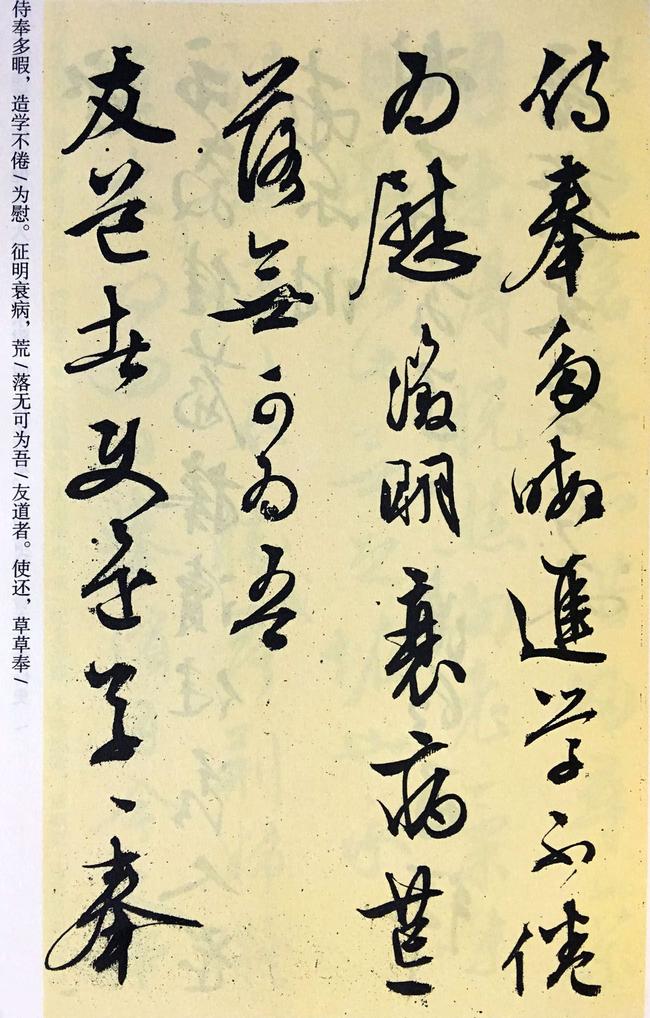 侍奉多暇進学不倦
为慰徵明衰病荒
落無可为吾
友道者使還草々奉
侍奉多暇，造学不倦/为慰。征明衰病，荒/落无可为吾/友道者。使还，草草奉/